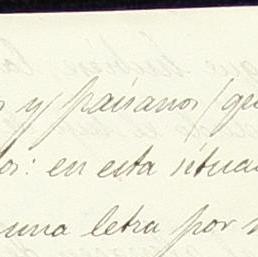 s y paisanos (que
los: en esta situa
una letra por